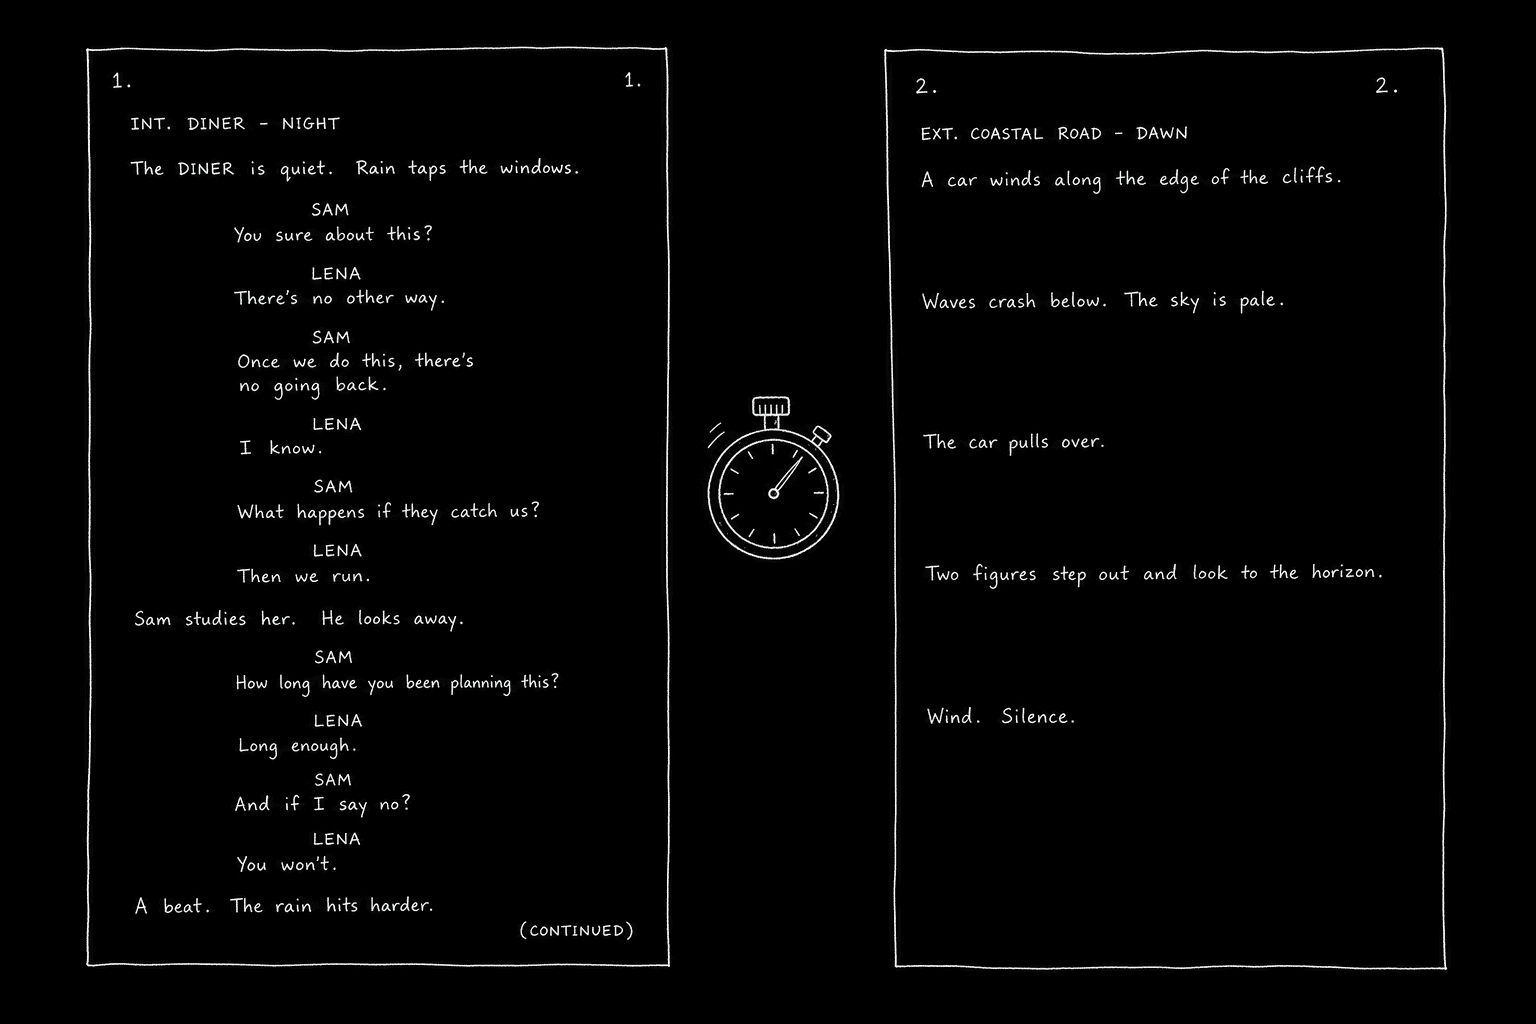 1. 1.
INT. DINER - NIGHT
The DINER is quiet. Rain taps the windows.
SAM
You sure about this?
LENA
There's no other way.
SAM
Once we do this, there's
no going back.
LENA
I know.
SAM
What happens if they catch us?
LENA
Then we run.
Sam studies her. He looks away.
SAM
How long have you been planning this?
LENA
Long enough.
SAM
And if I say no?
LENA
You won't.
A beat. The rain hits harder.
(CONTINUED)
2. 2.
EXT. COASTAL ROAD - DAWN
A car winds along the edge of the cliffs.
Waves crash below. The sky is pale.
The car pulls over.
Two figures step out and look to the horizon.
Wind. Silence.